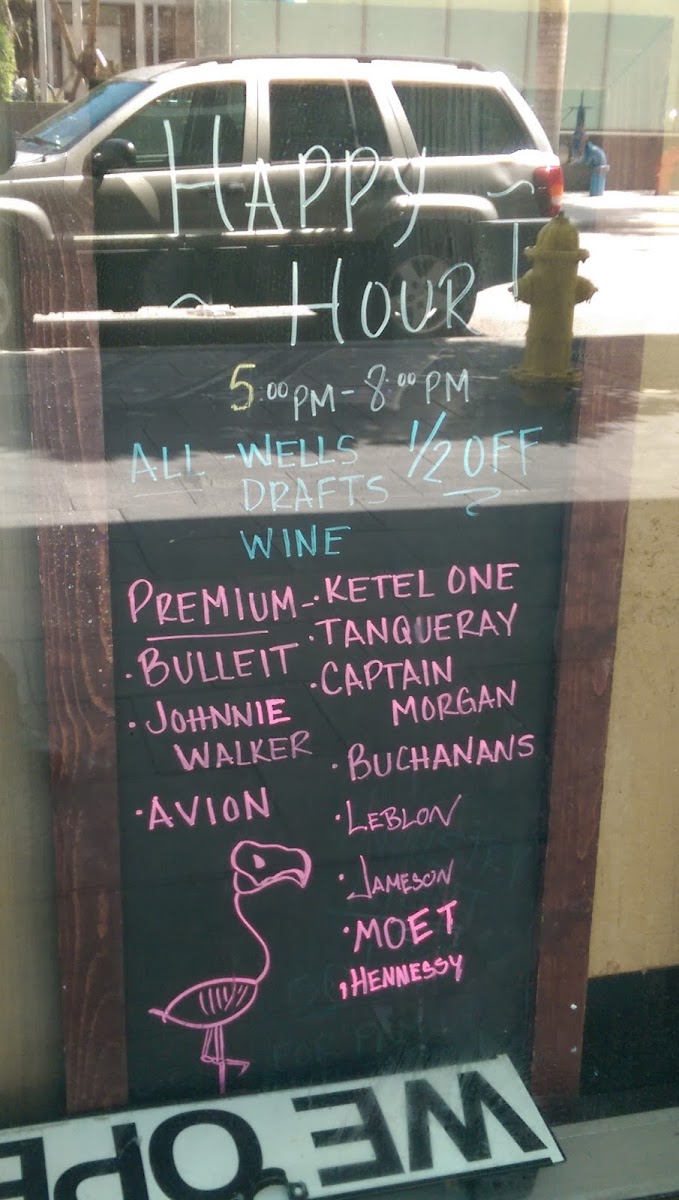 HAPPY
HOUR
5:00 PM - 8:00 PM
ALL - WELLS 1/2 OFF
DRAFTS
WINE
PREMIUM - · KETEL ONE
· TANQUERAY
· BULLEIT
· CAPTAIN
MORGAN
· JOHNNIE
WALKER
· BUCHANANS
· AVION
· LEBLON
· JAMESON
· MOET
· HENNESSY
WE OPE